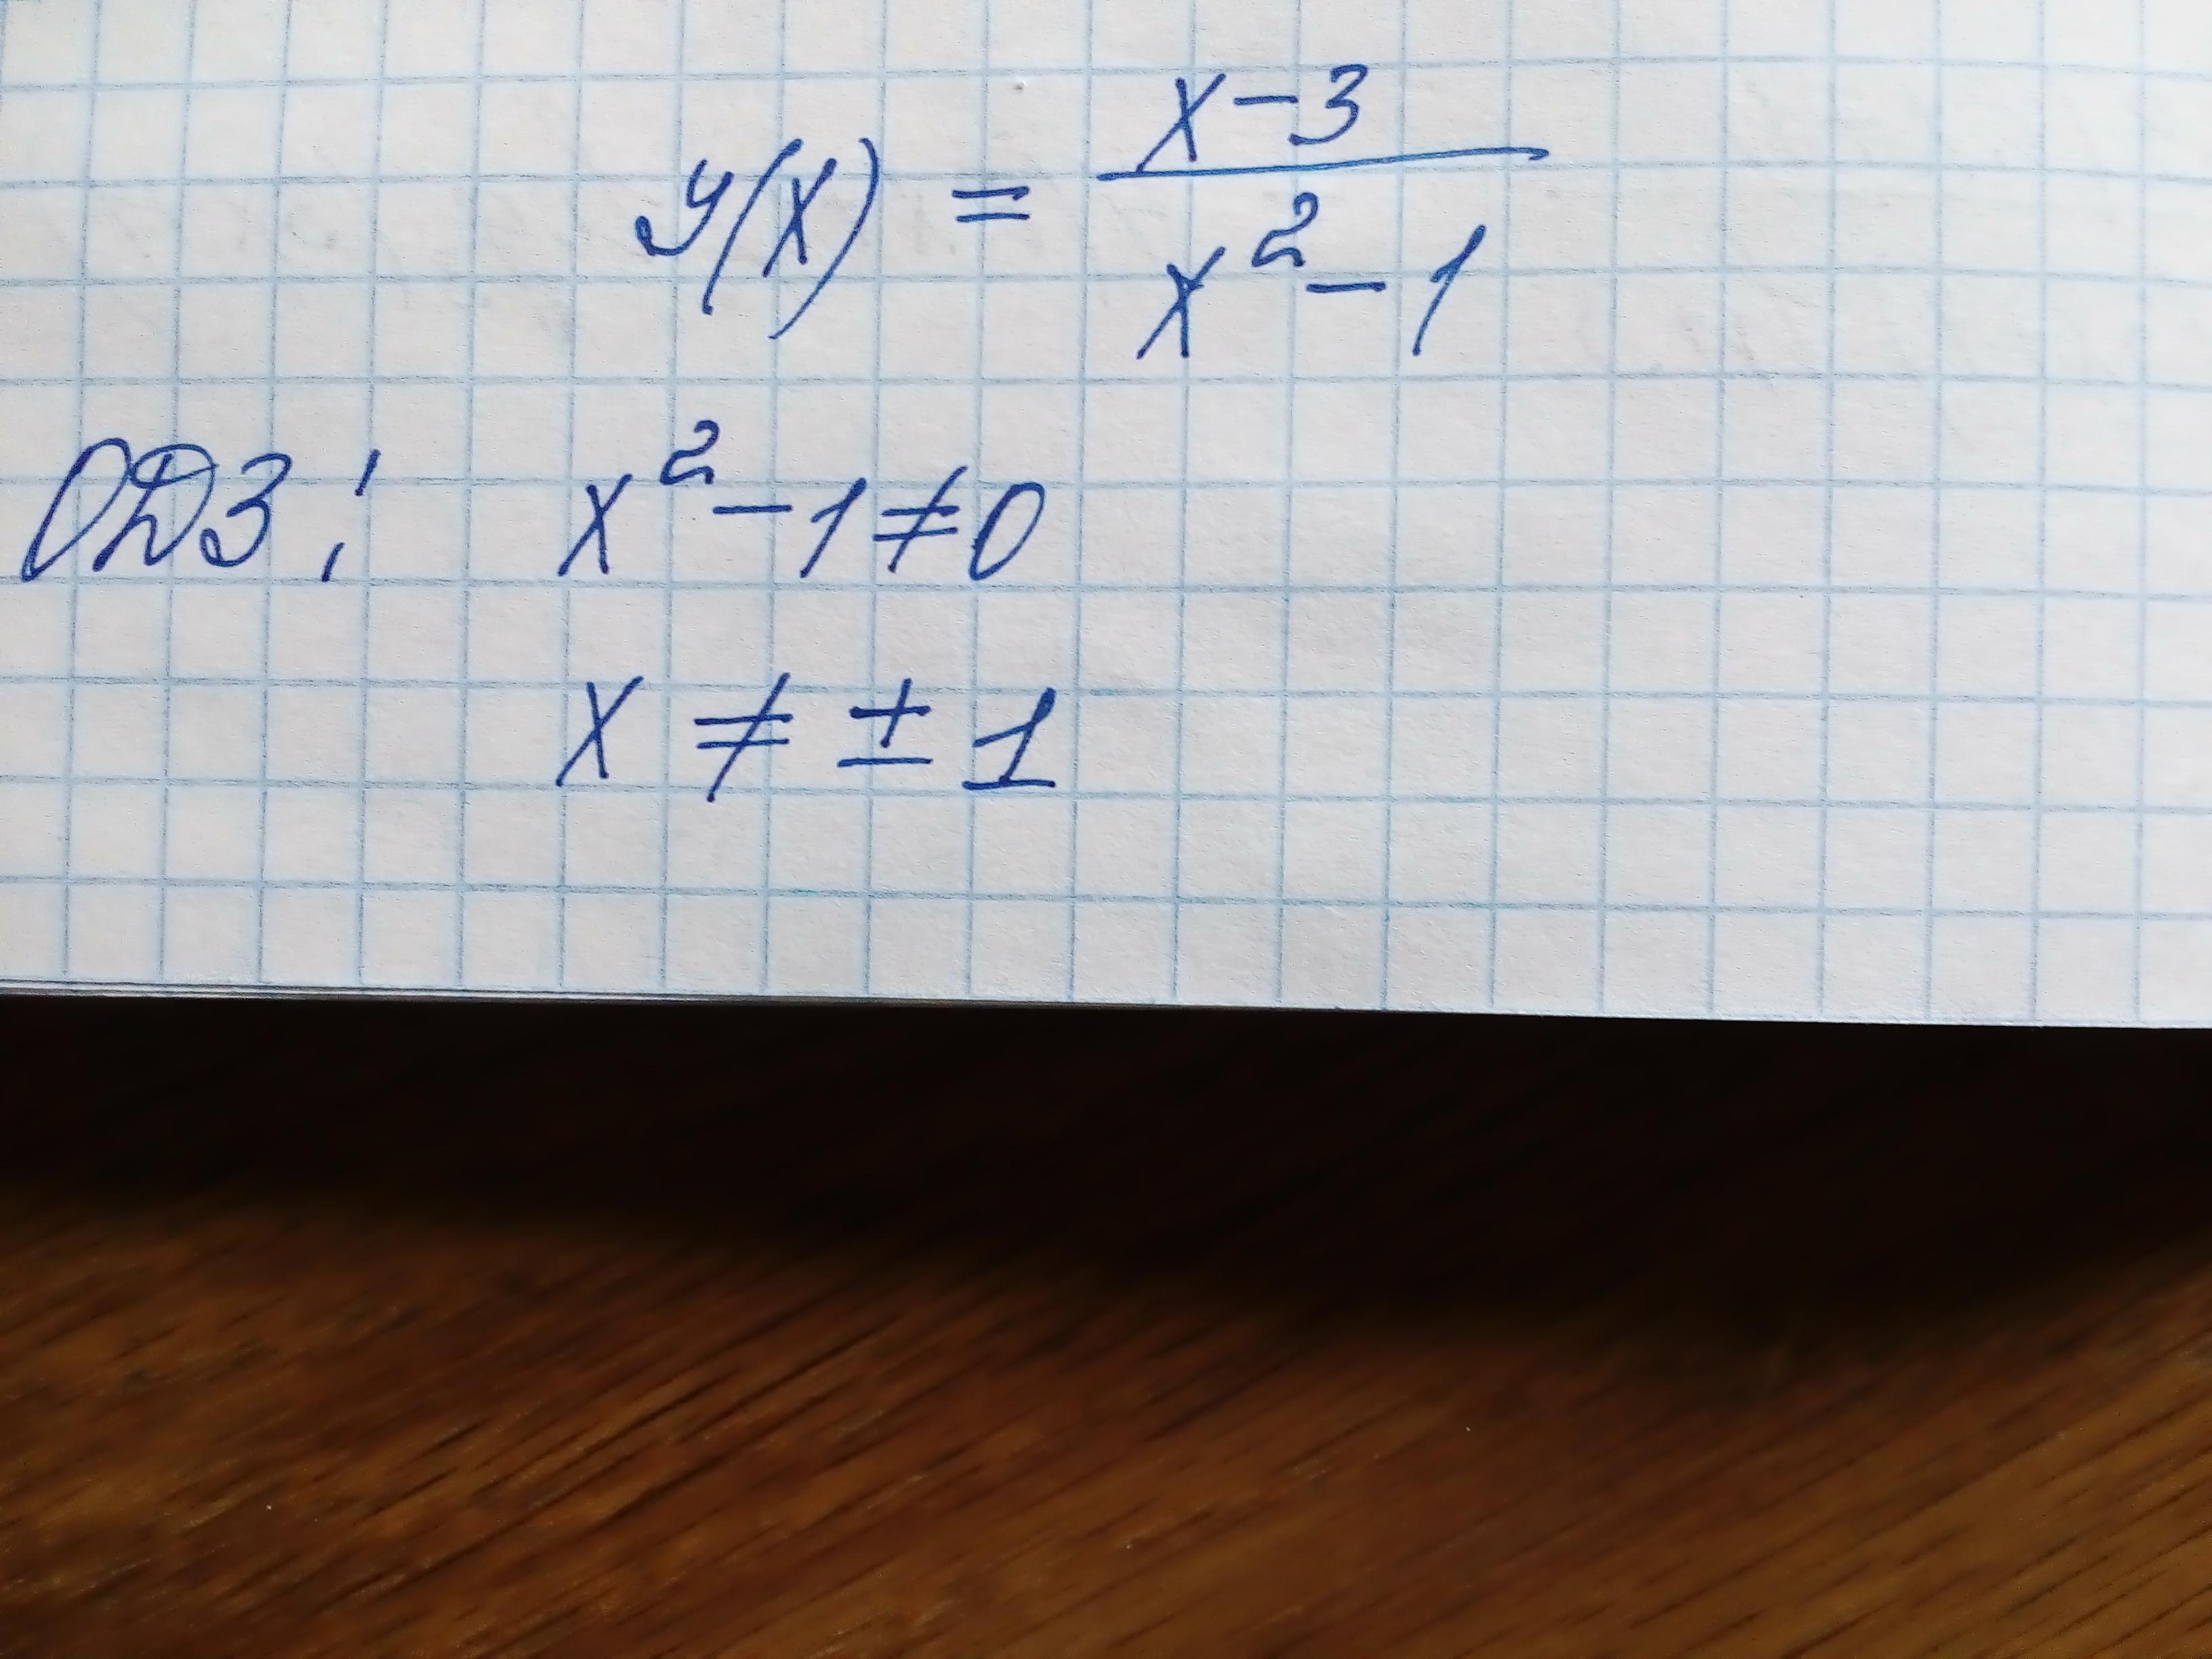 y(x) = (x-3)/(x²-1)
ОДЗ: x²-1≠0
x ≠ ±1